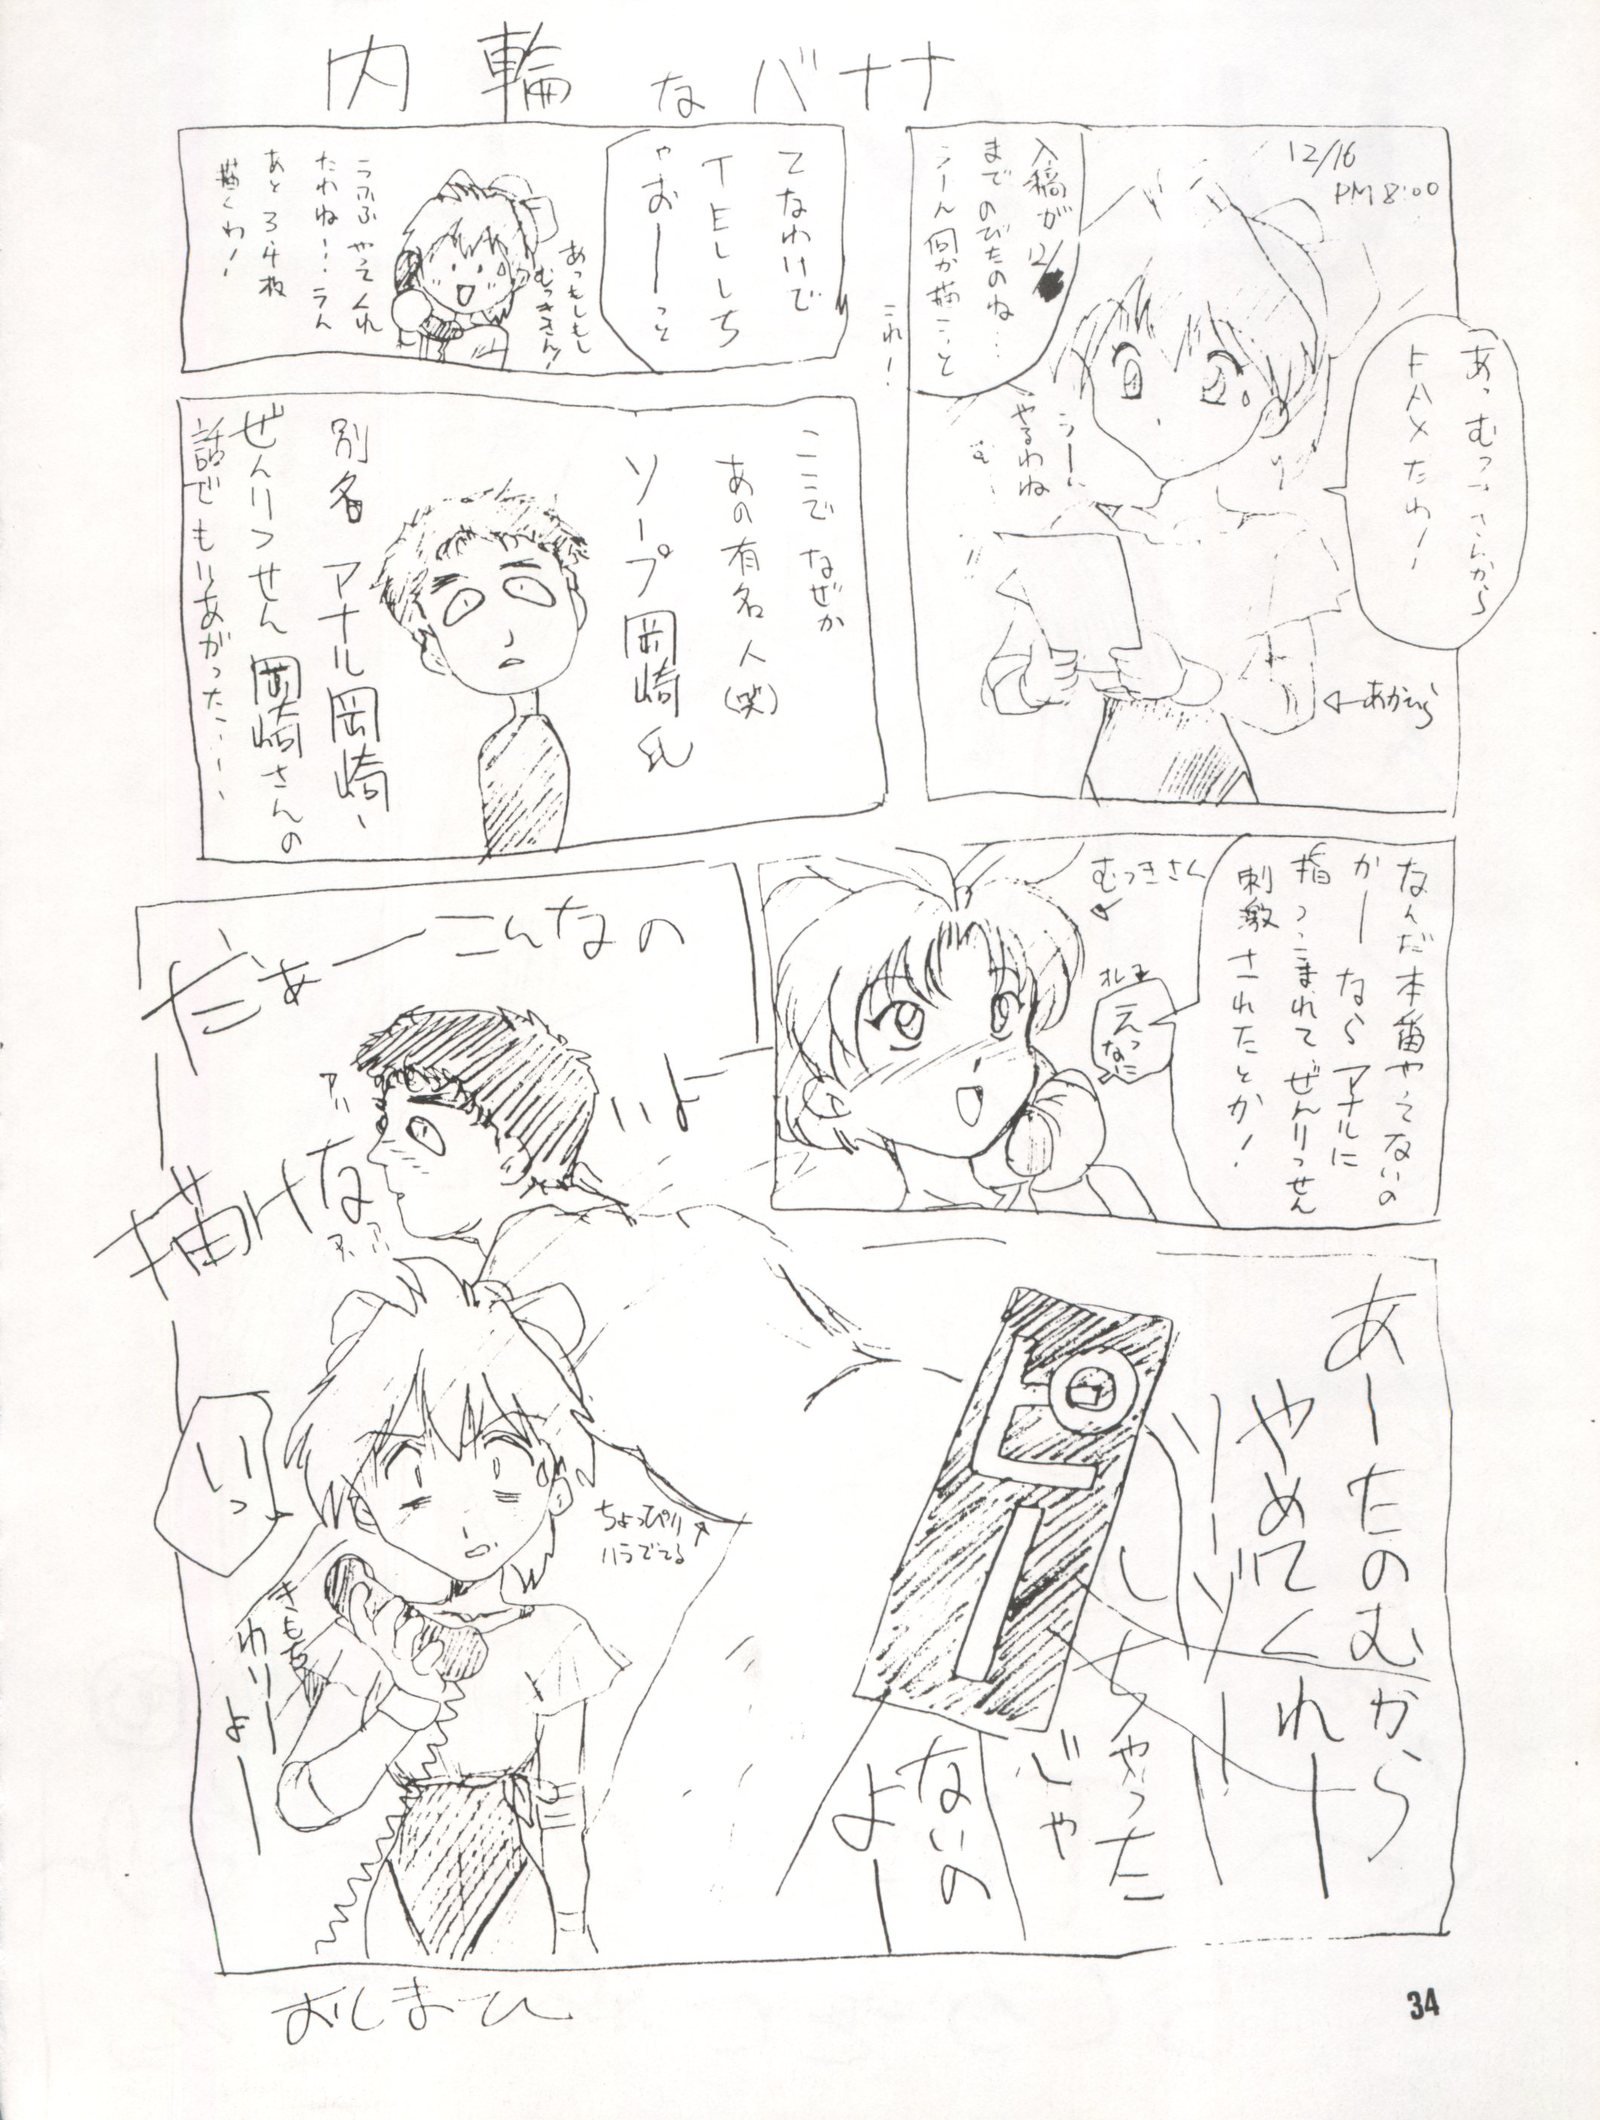 内輪なバナナ
12/16
PM 8:00
あっむつきさんから
FAXだわー
入稿が12/
までのびたのね…
うーん何か描こっと
これ!
うーん
やるわね
てなわけで
TELしち
ゃおーっと
あっもしもし
むつきさん!
うふふやってくれ
たわね…うん
あと3、4枚
描くわ!
ここでなぜか
あの有名人(笑)
ソープ岡崎氏
別名アナル岡崎、
ぜんりつせん岡崎さんの
話でもりあがった…
なんだ本番やってないの
かーならアナルに
指つっこまれて、ぜんりっせん
刺激されたとか!
むつきさん
オレ
えっ
なに
あーたのむから
やめてくれー
ソープ
ピー
しちゃった
じゃ
ないの
よー
だぁーこんなの
描けな
いよー
いっ
ちょっぴり
ハラでてる
きもち
わりー
よー
おしまひ
34